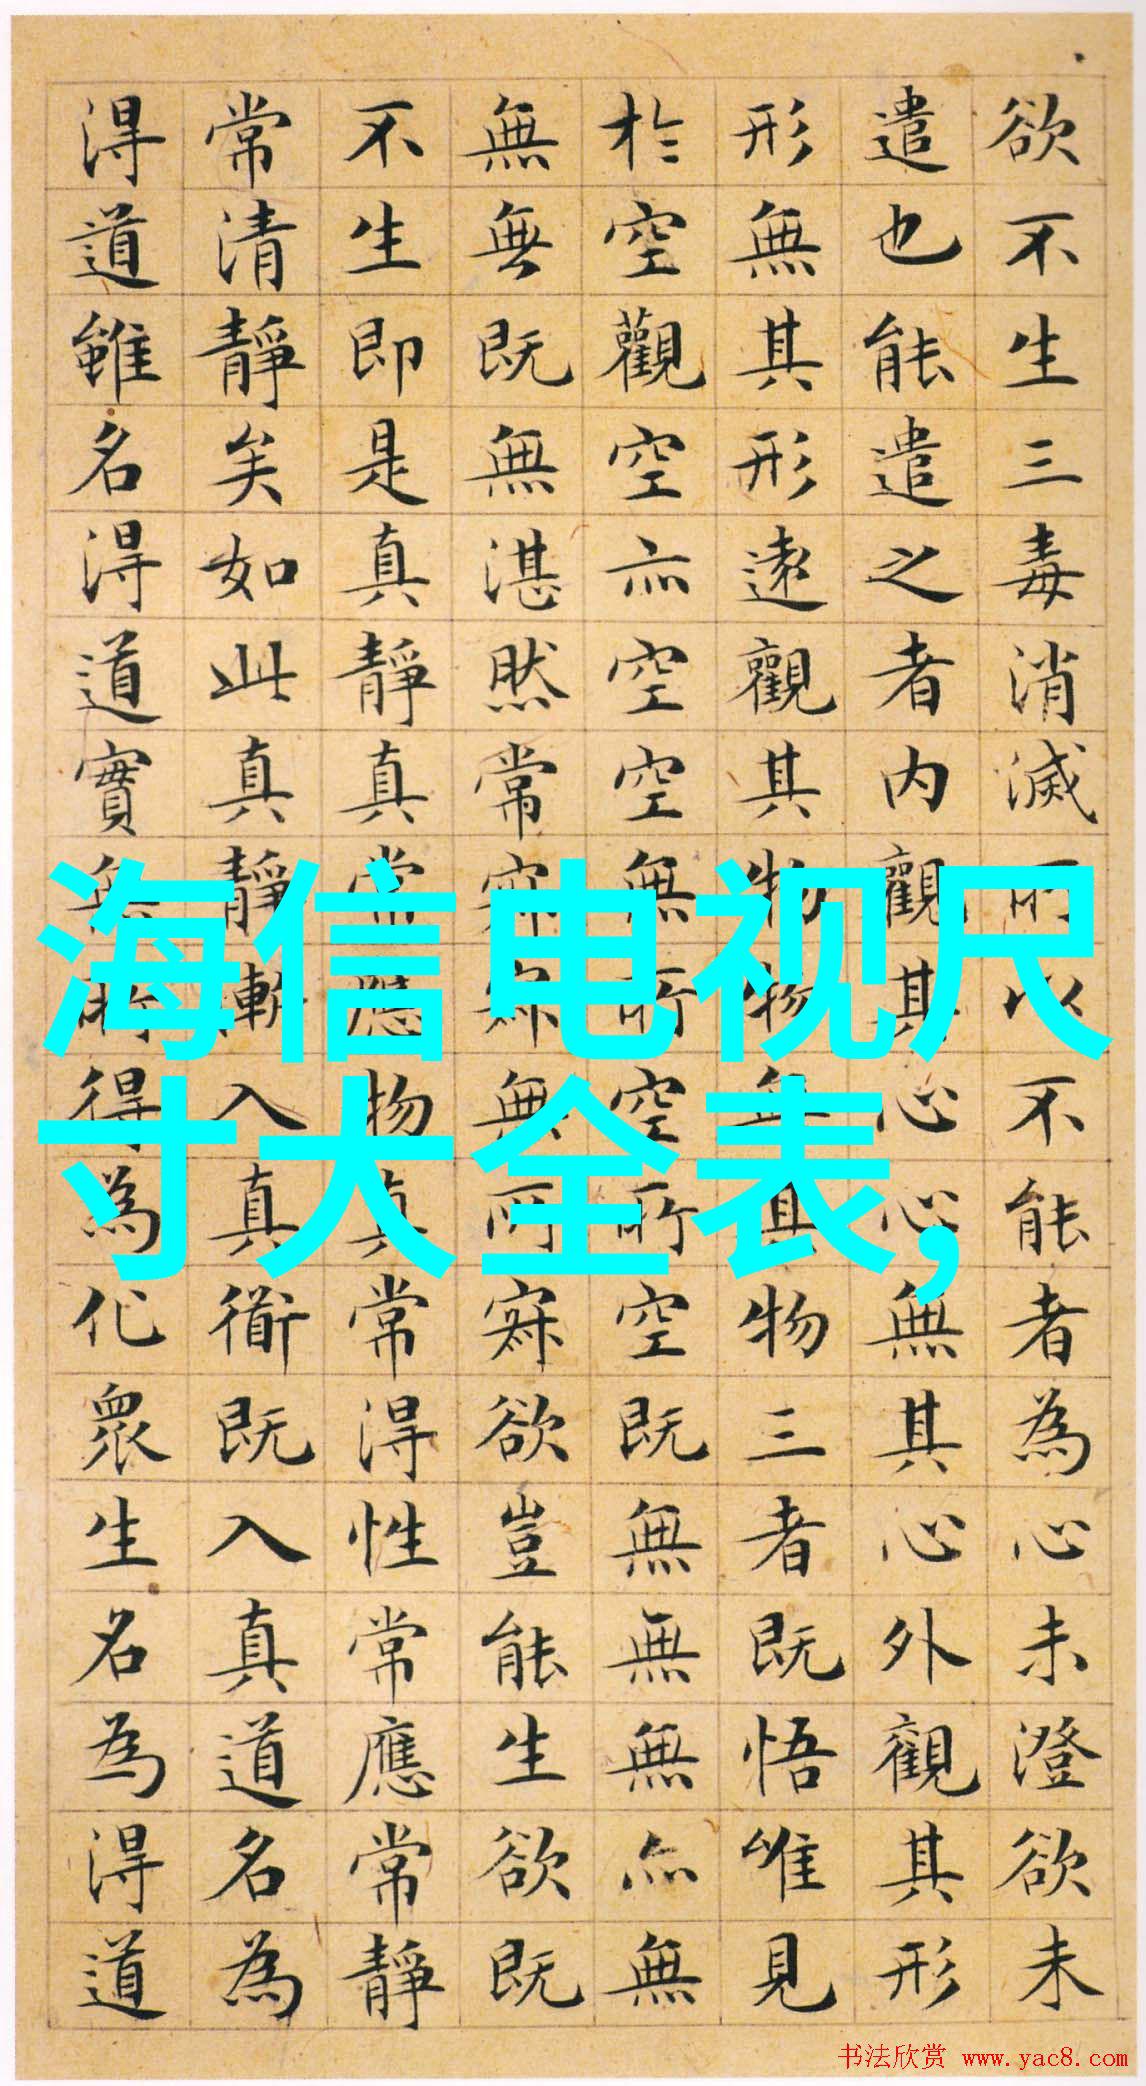 欲不生三毒消滅所以不能者為心未澄欲未
遣也能遣之者内觀其心心無其心外觀其形
形無其形遠觀其物物無其物三者既悟唯見
於空觀空亦空空無所空所空既無無無亦無
無無既無湛然常寂寂無所寂欲豈能生欲既
不生即是真靜真常應物真常得性常應常靜
常清靜矣如此真靜漸入真衜既入真道名為
得道雖名得道實無所得為化眾生名為得道
海信电视尺
寸大全表,
书法欣赏 www.yac8.com